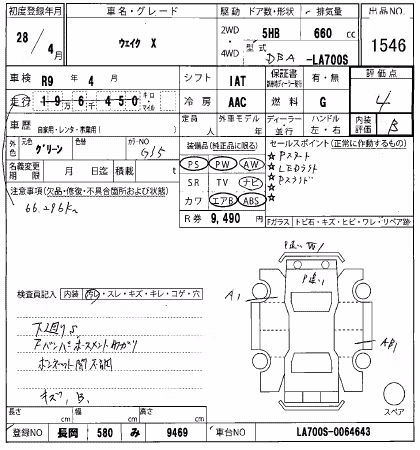 初度登録年月 車名・グレード 駆動 ドア数・形状 排気量 出品NO
28/4月 ウェイク X 2WD・4WD 5HB 660 cc 1546
型式 DBA -LA700S
車検 R9年 4月 シフト IAT 保証書 有・無 評価点 4
走行 19万6千450 キロ・マイル 冷房 AAC 燃料 G
車歴 自家用・レンタ・事業用( ) 定員 人 外車モデル 年 ディーラー・並行 ハンドル 左・右 内装評価 B
外色 グリーン 色替 カラーNO G55
装備品(純正品に限る) セールスポイント(正常に作動するもの)
PS PW AW
SR TV ナビ
カワ エアB ABS
☆Pスタート
☆LEDライト
☆Pスライド
☆
☆
名義変更期限 月 日迄 積載 t
注意事項(欠品・修復・不具合箇所および状態)
66.296km
R券 9,490円 Fガラス(トビ石・キズ・ヒビ・ワレ・リペア跡)
検査員記入 内装(汚れ・スレ・キズ・キレ・コゲ・穴
下回りS
ボンネット
キズ、B、
P違い
A1
スペア
長さ cm 幅 cm 高さ cm
登録NO 長岡 580 み 9469 車台NO LA700S-0064643